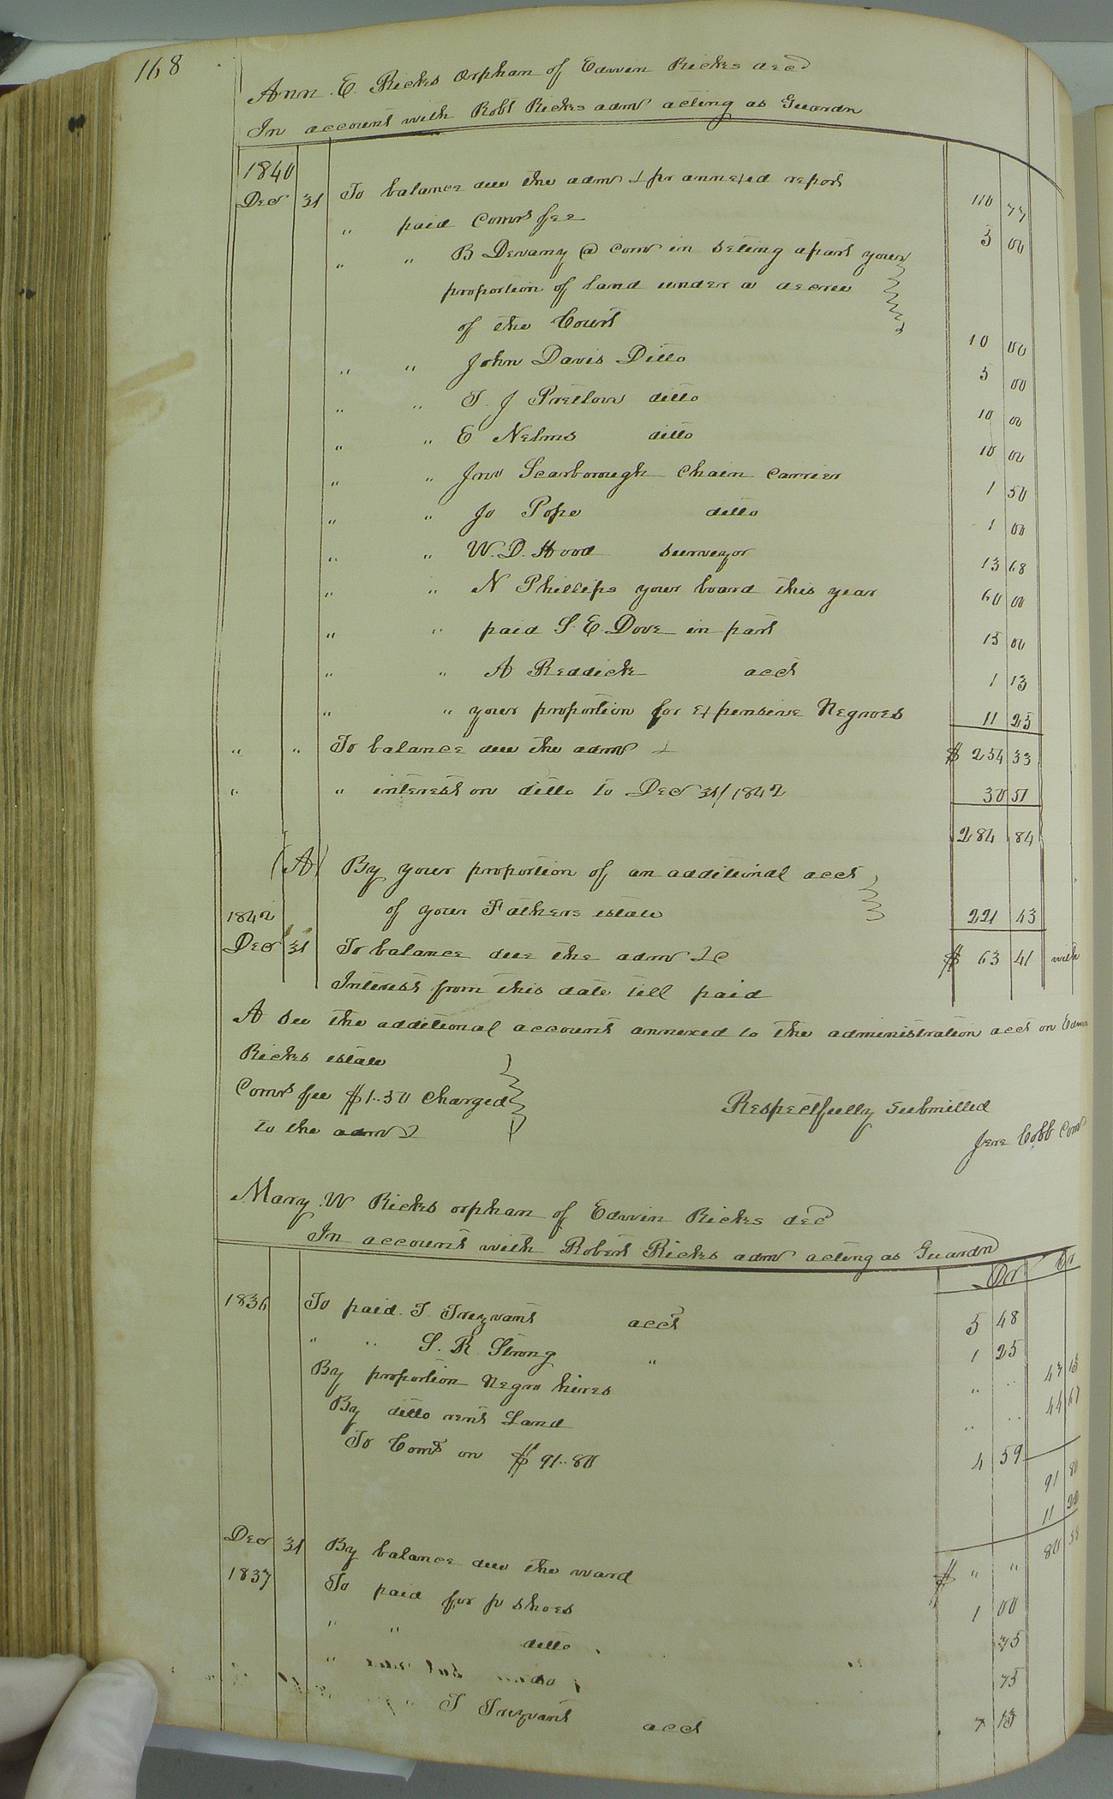 168
Ann. E. Ricks Orphan of Edwin Ricks decd
In account with Robt Ricks admr acting as Guardn
1840
Decr 31 To balance due the admr pr annexed report 110 77
" paid Comrs fee 5 00
" " B Devany @ Comr in seting apart your
proportion of land under a decree
of the Court 10 00
" " John Davis Ditto 5 00
" " T. J Pretlow ditto 10 00
" " E Nelms ditto 10 00
" " Jno Scarborough Chain Carrier 1 50
" " Jo Pope ditto 1 00
" " W. D. Hood surveyor 13 68
" " N Phillips your board this year 60 00
" " paid S. E. Dove in part 15 00
" " A Reddick acct 1 13
" " your proportion for expensive Negroes 11 25
" " To balance due the admr $ 254 33
" " interest on ditto to Decr 31/1842 30 51
284 84
(A) By your proportion of an additional acct
of your Fathers estate 221 43
1842
Decr 31 To balance due the admr &c $ 63 41 with
Interest from this date till paid
A see the additional account annexed to the administration acct on Edwin
Ricks estate
Comrs fee $1..50 Charged
to the admr
Respectfully submitted
Jere Cobb Comr
Mary. W Ricks orphan of Edwin Ricks decd
In account with Robert Ricks admr acting as Guardn
Dr Cr
1836 To paid T Trezvant acct 5 48
" " S. R Strong " 1 25
By proportion Negro hires " " 47 13
By ditto rent Land " " 44 67
To Coms on $ 91..80 4 59
91 80
11 20
Decr 31 By balance due the ward $ " " 80 58
1837 To paid for pr shoes 1 00
" " ditto 75
75
" T Trezvant acct 7 13